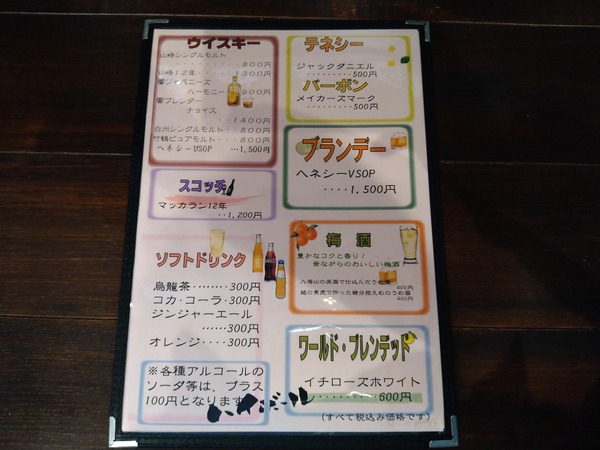 ウイスキー
山崎シングルモルト
・・・・・・・・・800円
山崎12年・・・1300円
響ジャパニーズ
ハーモニー・・900円
響ブレンダー
チョイス
・・1400円
白州シングルモルト・・800円
竹鶴ピュアモルト・・・800円
ヘネシーVSOP ・・・1,500円
スコッチ
マッカラン12年
・・1,200円
ソフトドリンク
烏龍茶・・・・・・・300円
コカ・コーラ・300円
ジンジャーエール
・・・・・・300円
オレンジ・・・・300円
※各種アルコールの
ソーダ等は、プラス
100円となります
ハイボール
テネシー
ジャックダニエル
・・・・・・・・・500円
バーボン
メイカーズマーク
・・・・・・・・・500円
ブランデー
ヘネシーVSOP
・・・・1,500円
梅酒
豊かなコクと香り!
昔ながらのおいしい梅酒
八海山の原酒で仕込んだうめ酒
400円
越の景虎で作った糖分控えめのうめ酒
400円
ワールド・ブレンデッド
イチローズホワイト
・・・・・・・・・600円
(すべて税込み価格です)